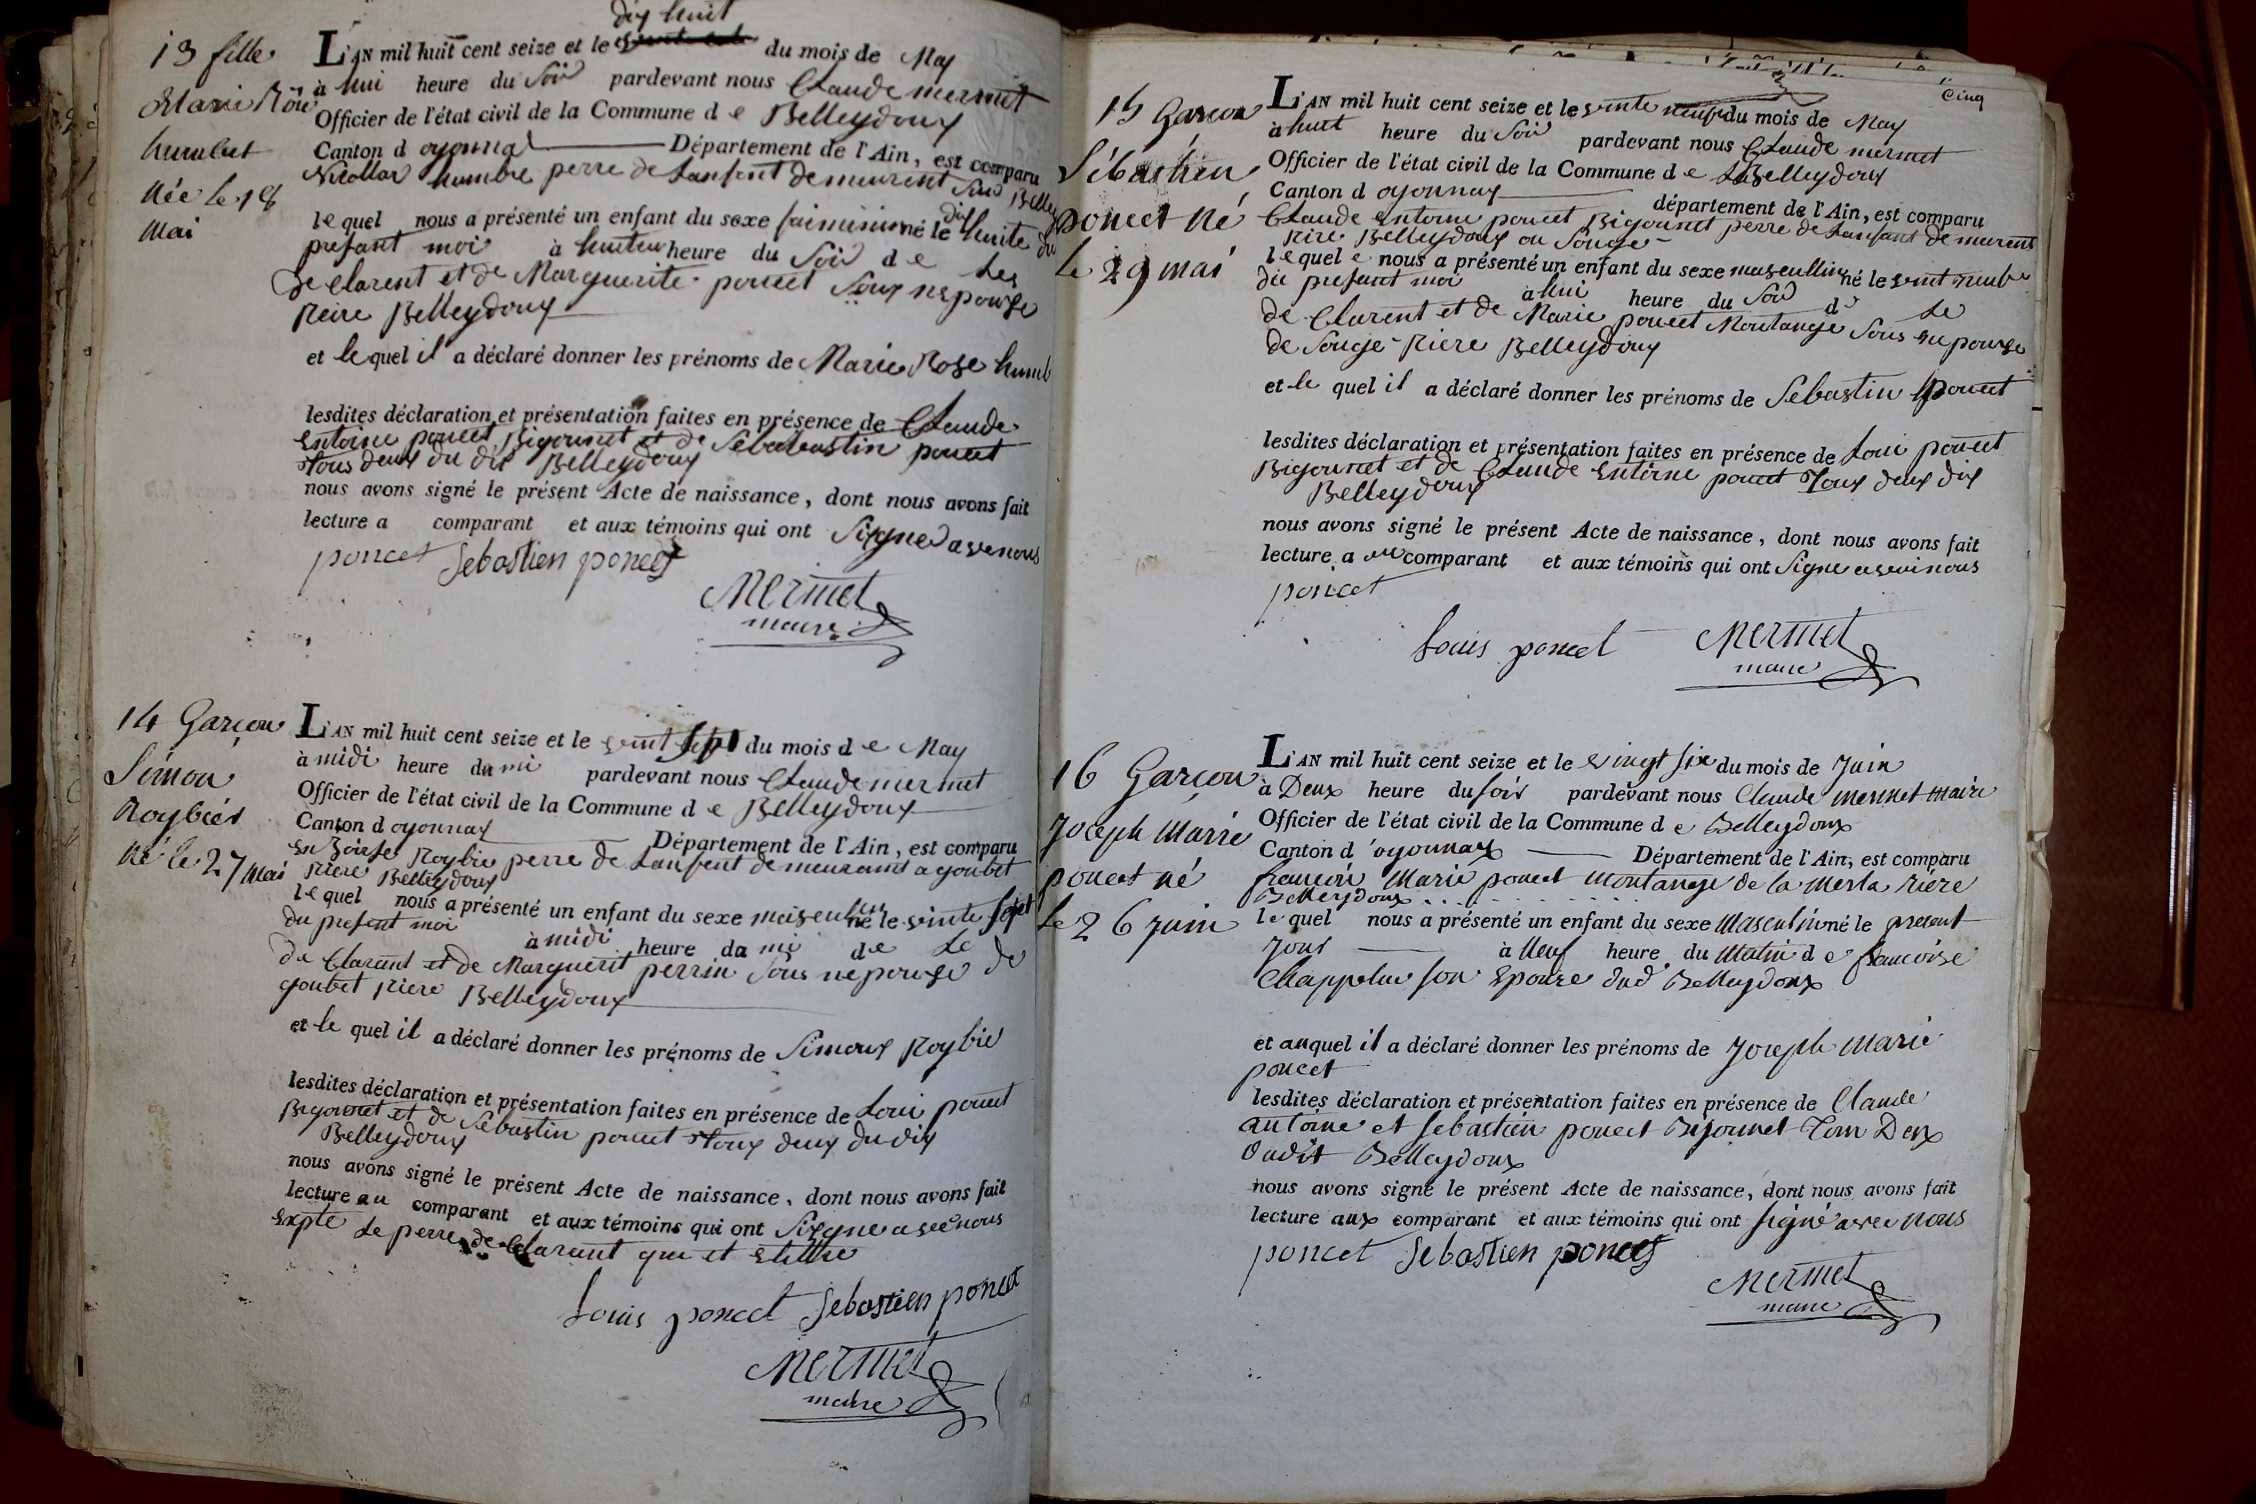 13 fille
Marie Rose
humbert
Née le 18
Mai
dix huit
L'AN mil huit cent seize et le du mois de May
à hui heure du Soir pardevant nous Claude mermet
Officier de l'état civil de la Commune d e Belleydoux
Canton d oyonnax Département de l'Ain, est comparu
Nicollas humbre perre de Lanfent demeurent Belley
le quel nous a présenté un enfant du sexe faiminin né le dix huite du
present moi à huiteur heure du Soir d e Les
De Clarent et de Marguerite poncet Sous nepouse
Riere Belleydoux
et le quel il a déclaré donner les prénoms de Marie Rose humb
lesdites déclaration et présentation faites en présence de Claude
Entoine poncet Bigounet et de Sebabastin poncet
Tous deux du dit Belleydoux
nous avons signé le présent Acte de naissance, dont nous avons fait
lecture a comparant et aux témoins qui ont Signe avenous
poncet Sebastien poncet
Mermet
maire
14 Garçon
Simon
Roybiér
Né le 27 Mai
L'AN mil huit cent seize et le veint sept du mois d e May
à midi heure du mi pardevant nous Claude mermet
Officier de l'état civil de la Commune d e Belleydoux
Canton d oyonnax Département de l'Ain, est comparu
Roybie perre de Lanfent demeurant a goubet
Riere Belleydoux
le quel nous a présenté un enfant du sexe maiseulin né le veinte sept
du present moi à midi heure du mi de Le
De Clarant et de Marguerit perrin Sous nepouse de
goubet Riere Belleydoux
et le quel il a déclaré donner les prénoms de Simoux Roybie
lesdites déclaration et présentation faites en présence de Loui poncet
Bigounet et de Sebastin poncet Toux deux du dix
Belleydoux
nous avons signé le présent Acte de naissance, dont nous avons fait
lecture au comparant et aux témoins qui ont Signe avec nous
Expté Le perre de Clarant qui et
Louis poncet Sebastien poncet
Mermet
maire
Cinq
15 Garçon
Sébastien
poncet Né
le 29 mai
L'AN mil huit cent seize et le veinte neuf du mois de May
à huit heure du Soir pardevant nous Claude mermet
Officier de l'état civil de la Commune d e Belleydoux
Canton d oyonnax département de l'Ain, est comparu
Claude Entoine poncet Bigounet perre de Lanfant demeurent
Rire Belleydoux ou Souge
le quel e nous a présenté un enfant du sexe maseullin né le veint neube
die present moi à hui heure du Soir d Le
de Clarent et de Marie poncet Montange Sous nepouse
de Souge Riere Belleydoux
et le quel il a déclaré donner les prénoms de Sebastin poncet
lesdites déclaration et présentation faites en présence de Loui poncet
Bigounet et de Claude Entoine poncet Toux deux dix
Belleydoux
nous avons signé le présent Acte de naissance, dont nous avons fait
lecture a comparant et aux témoins qui ont Signe avei nous
poncet
Louis poncet Mermet
maire
16 Garçon
Joseph Marie
poncet né
le 26 juin
L'AN mil huit cent seize et le vingt six du mois de Juin
à Deux heure du soir pardevant nous Claude mermet maire
Officier de l'état civil de la Commune d e Belleydoux
Canton d oyonnax Département de l'Ain, est comparu
françois Marie poncet montange de la Merla Riére
Belleydoux
le quel nous a présenté un enfant du sexe Masculin né le present
Jour à Neuf heure du Matin d e francoise
Chappelu son Epouse dud. Belleydoux
et auquel il a déclaré donner les prénoms de Joseph Marie
poncet
lesdites déclaration et présentation faites en présence de Claude
antoine et Sebastien poncet Bijounet Tous Deux
dudit Belleydoux
nous avons signé le présent Acte de naissance, dont nous avons fait
lecture aux comparant et aux témoins qui ont signé avec nous
poncet Sebastien poncet
Mermet
maire